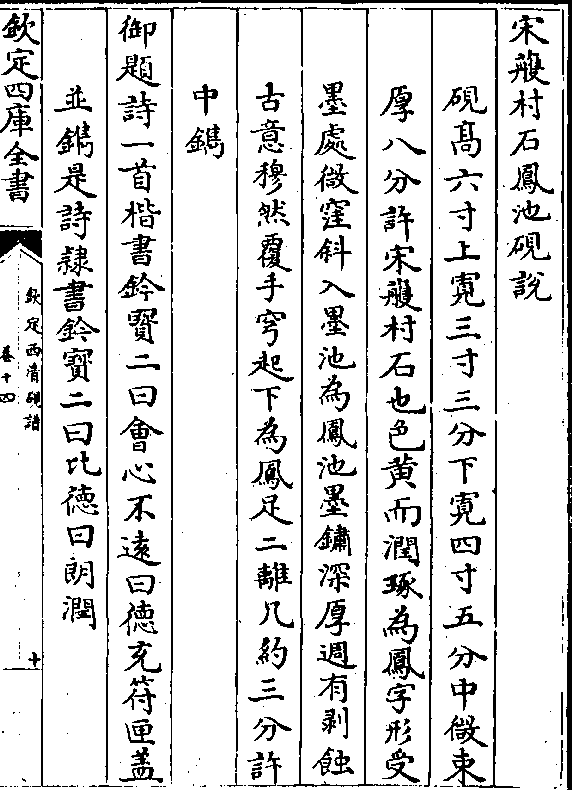 宋㲉村石鳳池硯說
硯高六寸上寛三寸三分下寛四寸五分中微束
厚八分許宋㲉村石也色黄而潤琢為鳳字形受
墨處微窪斜入墨池為鳳池墨鏽深厚週有剥蝕
古意穆然覆手穹起下為鳳足二離几約三分許
中鐫
御題詩一首楷書鈐寶二曰會心不逺曰徳充符匣盖
並鐫是詩隸書鈐寶二曰比徳曰朗潤
欽定四庫全書
欽定西清硯譜
卷十四
十